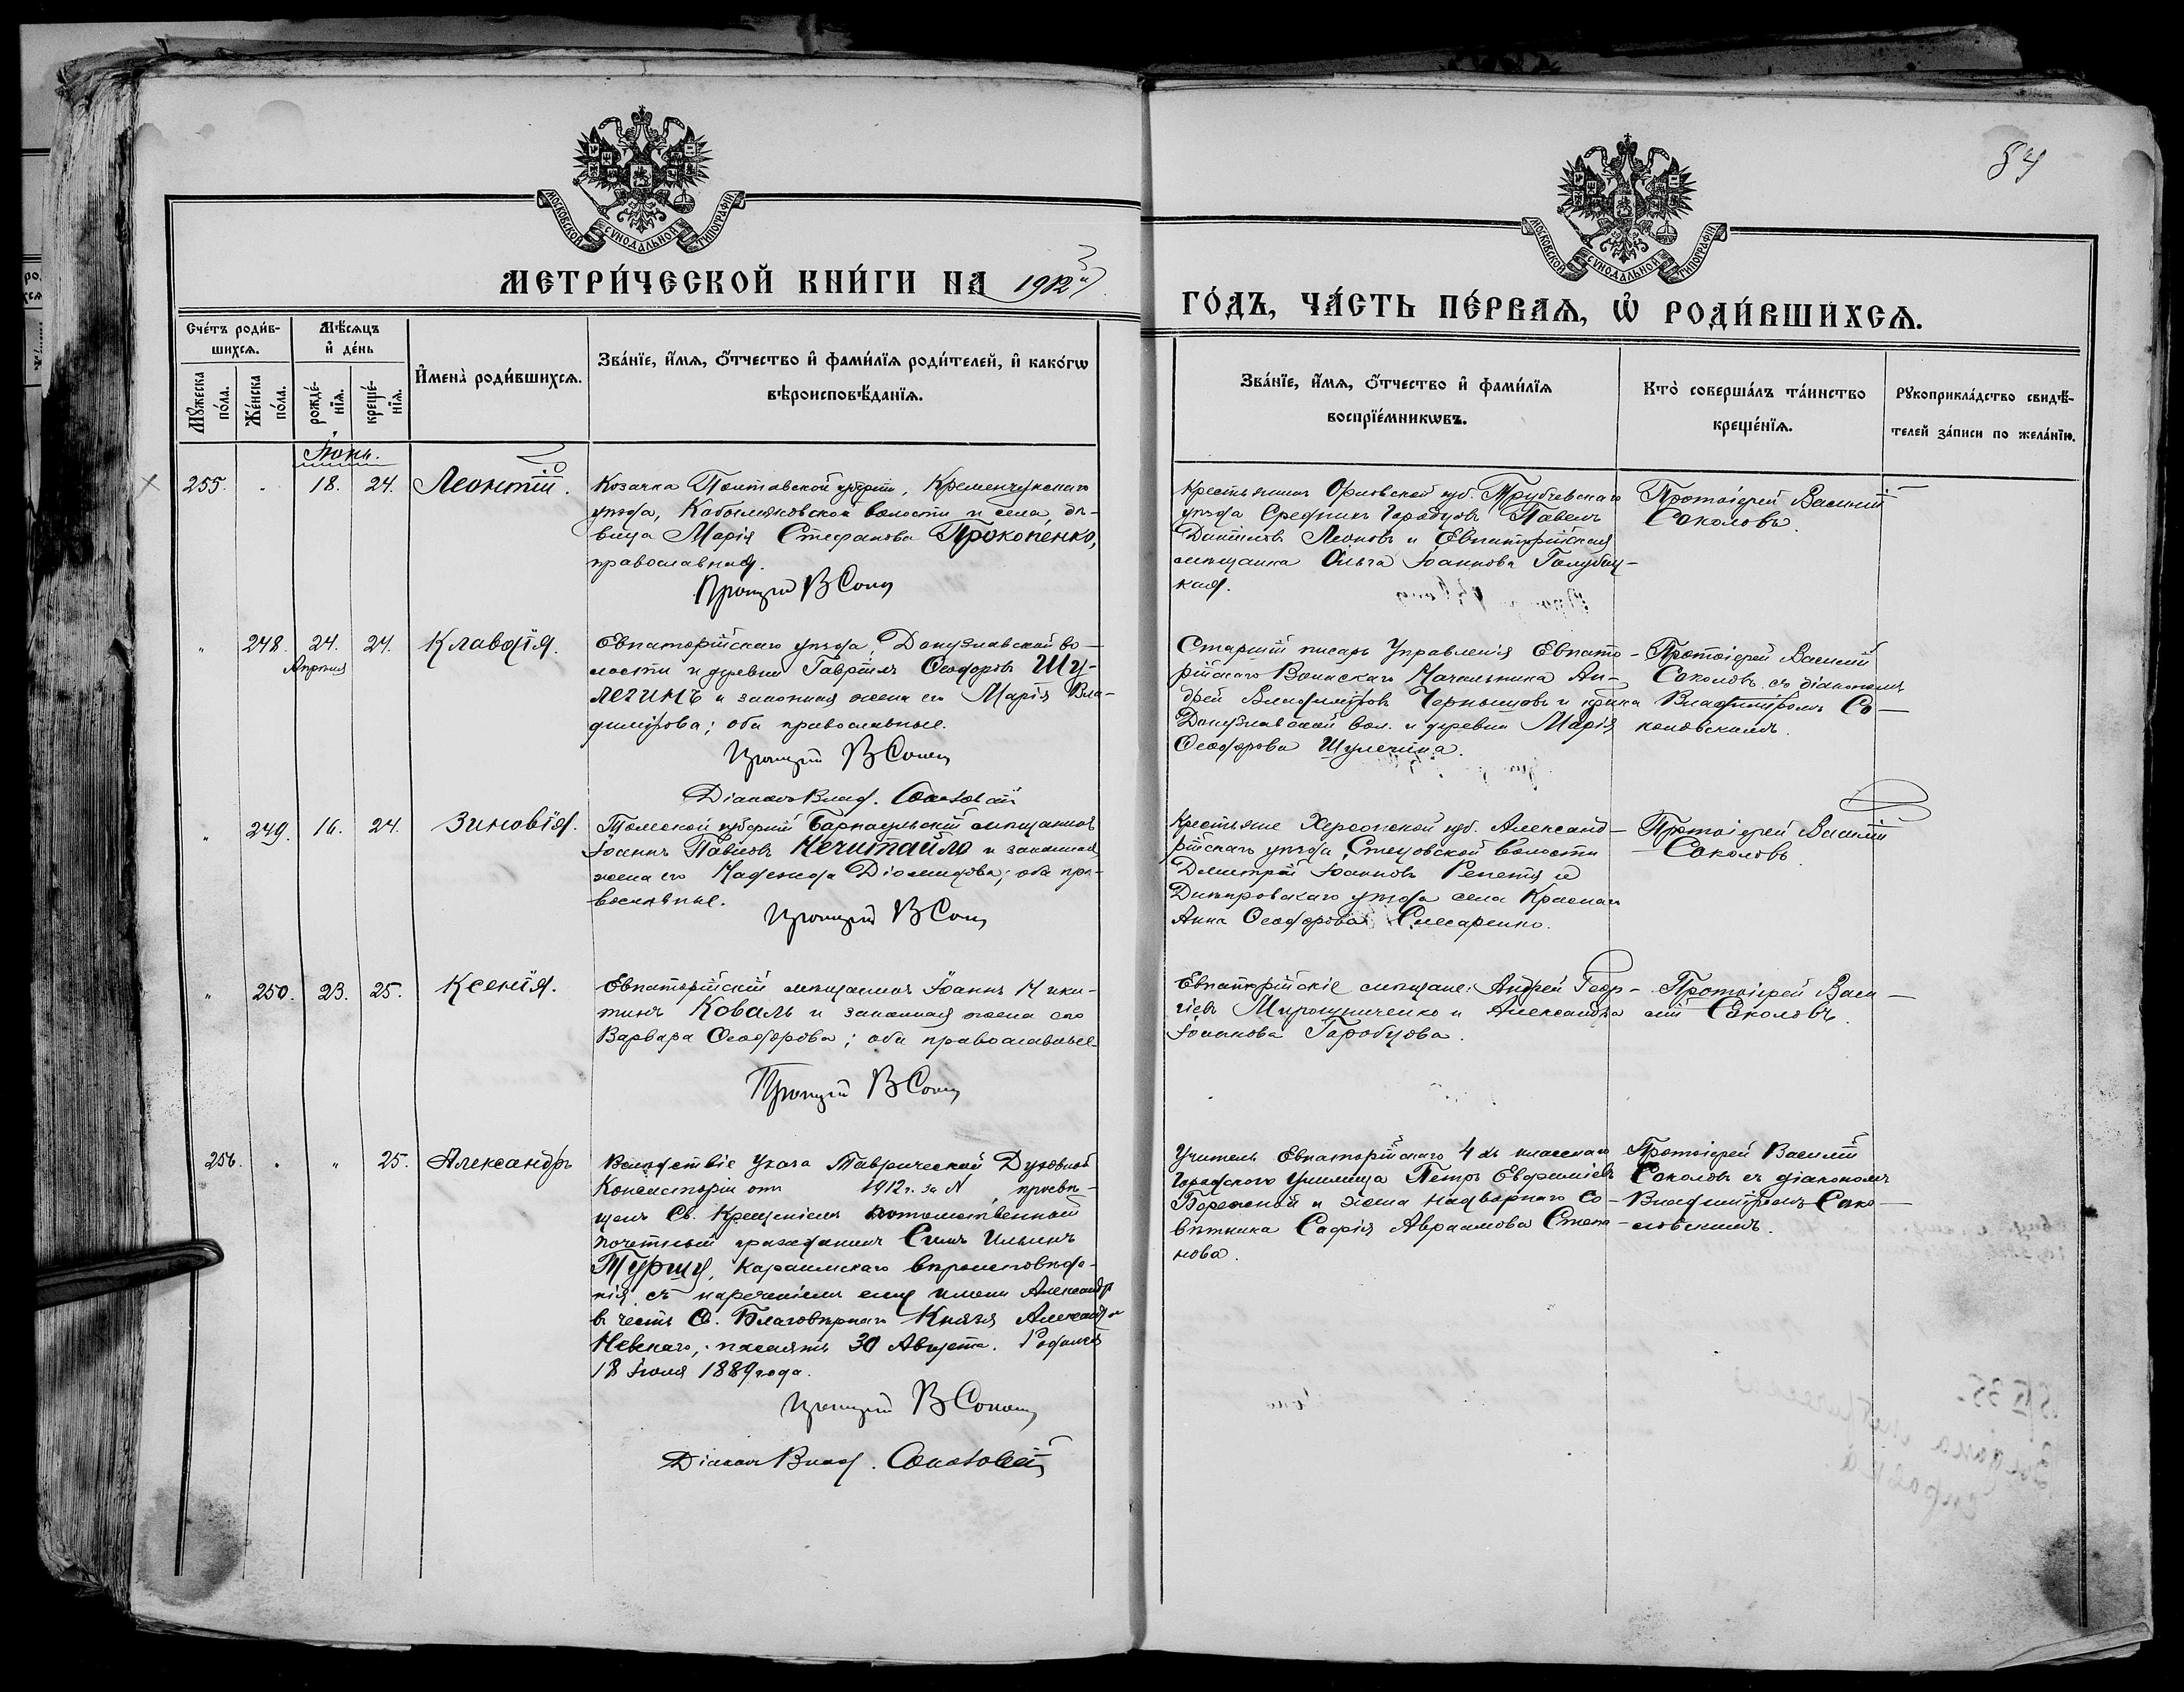 84
МОСКОВСКОЙ СѴНОДАЛЬНОЙ ТИПОГРАФІИ
МОСКОВСКОЙ СѴНОДАЛЬНОЙ ТИПОГРАФІИ
МЕТРИ́ЧЕСКОЙ КНИ́ГИ НА 1912й
ГО́ДЪ, ЧА́СТЬ ПЕ́РВАЯ, Ѡ҆ РОДИ́ВШИХСЯ.
Сче́тъ роди́в-
шихся.
Мꙋ́жеска по́ла.
Же́нска по́ла.
Мѣ́сяцъ
и҆ де́нь
рожде́-нїя.
креще́-нїя.
И҆мена̀ роди́вшихся.
Зва́нїе, и҆́мя, ѻ҆́тчество и҆ фами́лїя роди́телей, и҆ како́гѡ
вѣроисповѣ́данїя.
Зва́нїе, и҆́мя, ѻ҆́тчество и҆ фами́лїя
воспрїе́мникѡвъ.
Кто̀ соверша́лъ та́инство
креще́нїя.
Рꙋкоприкла́дство свидѣ́-
телей за́писи по жела́нїю.
Іюнь.
255. " 18. 24. Леонтій.
Козачка Полтавской губерніи, Кременчугскаго
уѣзда, Кобелякской волости и села, дѣ-
вица Марія Стефанова Прокопенко,
православная.
Протоіерей В Сокол
Крестьянинъ Орловской губ. Трубчевскаго
уѣзда Городцовъ Павелъ
Даниловъ Леоновъ и Евпаторійская
мѣщанка Ольга Іоаннова Голубец-
кая.
Протоіерей Василій
Соколовъ.
" 248. 24. 24. Клавдія.
Апрѣля
Евпаторійскаго уѣзда, Донузлавской во-
лости и деревни Гавріилъ Ѳеодоровъ Шу-
легинъ и законная жена его Марія Вла-
димірова; оба православные.
Протоіерей В Сокол
Діаконъ Влад. Соколовскій
Старшій писарь Управленія Евпато-
рійскаго Воинскаго Начальника Ан-
дрей Владиміровъ Чернышовъ и
Донузлавской вол. и деревни Марія
Ѳеодорова Шулегина.
Протоіерей Василій
Соколовъ съ діакономъ
Владиміромъ Со-
коловскимъ.
" 249. 16. 24. Зиновія.
Томской губерніи Барнаульскій мѣщанинъ
Іоаннъ Павловъ Нечитайло и законная
жена его Надежда Діомидова; оба пра-
вославные.
Протоіерей В Сокол
Крестьяне Херсонской губ. Александ-
рійскаго уѣзда, Стецовской волости
Димитрій Іоанновъ Репетя и
Днѣпровскаго уѣзда села Краснаго
Анна Ѳеодорова Слесаренко.
Протоіерей Василій
Соколовъ.
" 250. 23. 25. Ксенія.
Евпаторійскій мѣщанинъ Іоаннъ Ники-
тинъ Коваль и законная жена его
Варвара Ѳеодорова; оба православные.
Протоіерей В Сокол
Евпаторійскіе мѣщане: Андрей Геор-
гіевъ Мирошниченко и Александра
Іоаннова Горобцова.
Протоіерей Васи-
лій Соколовъ.
256. " " 25. Александръ
Вслѣдствіе Указа Таврической Духовной
Консисторіи отъ 1912 г. за N , просвѣ-
щенъ Св. Крещеніемъ потомственный
почетный гражданинъ Симъ Ильинъ
Туршу, Караимскаго вѣроисповѣда-
нія съ нареченіемъ ему имени Александръ
въ честь Св. Благовѣрнаго Князя Александра
Невскаго, память 30 Августа. Родился
18 Іюля 1889 года.
Протоіерей В Сокол
Діаконъ Влад. Соколовскій
Учитель Евпаторійскаго 4 хъ класснаго
Городского училища Петръ Евфиміевъ
Бережной и жена надворнаго со-
вѣтника Софія Авраамова
нова.
Протоіерей Василій
Соколовъ съ діакономъ
Владиміромъ Соко-
ловскимъ.